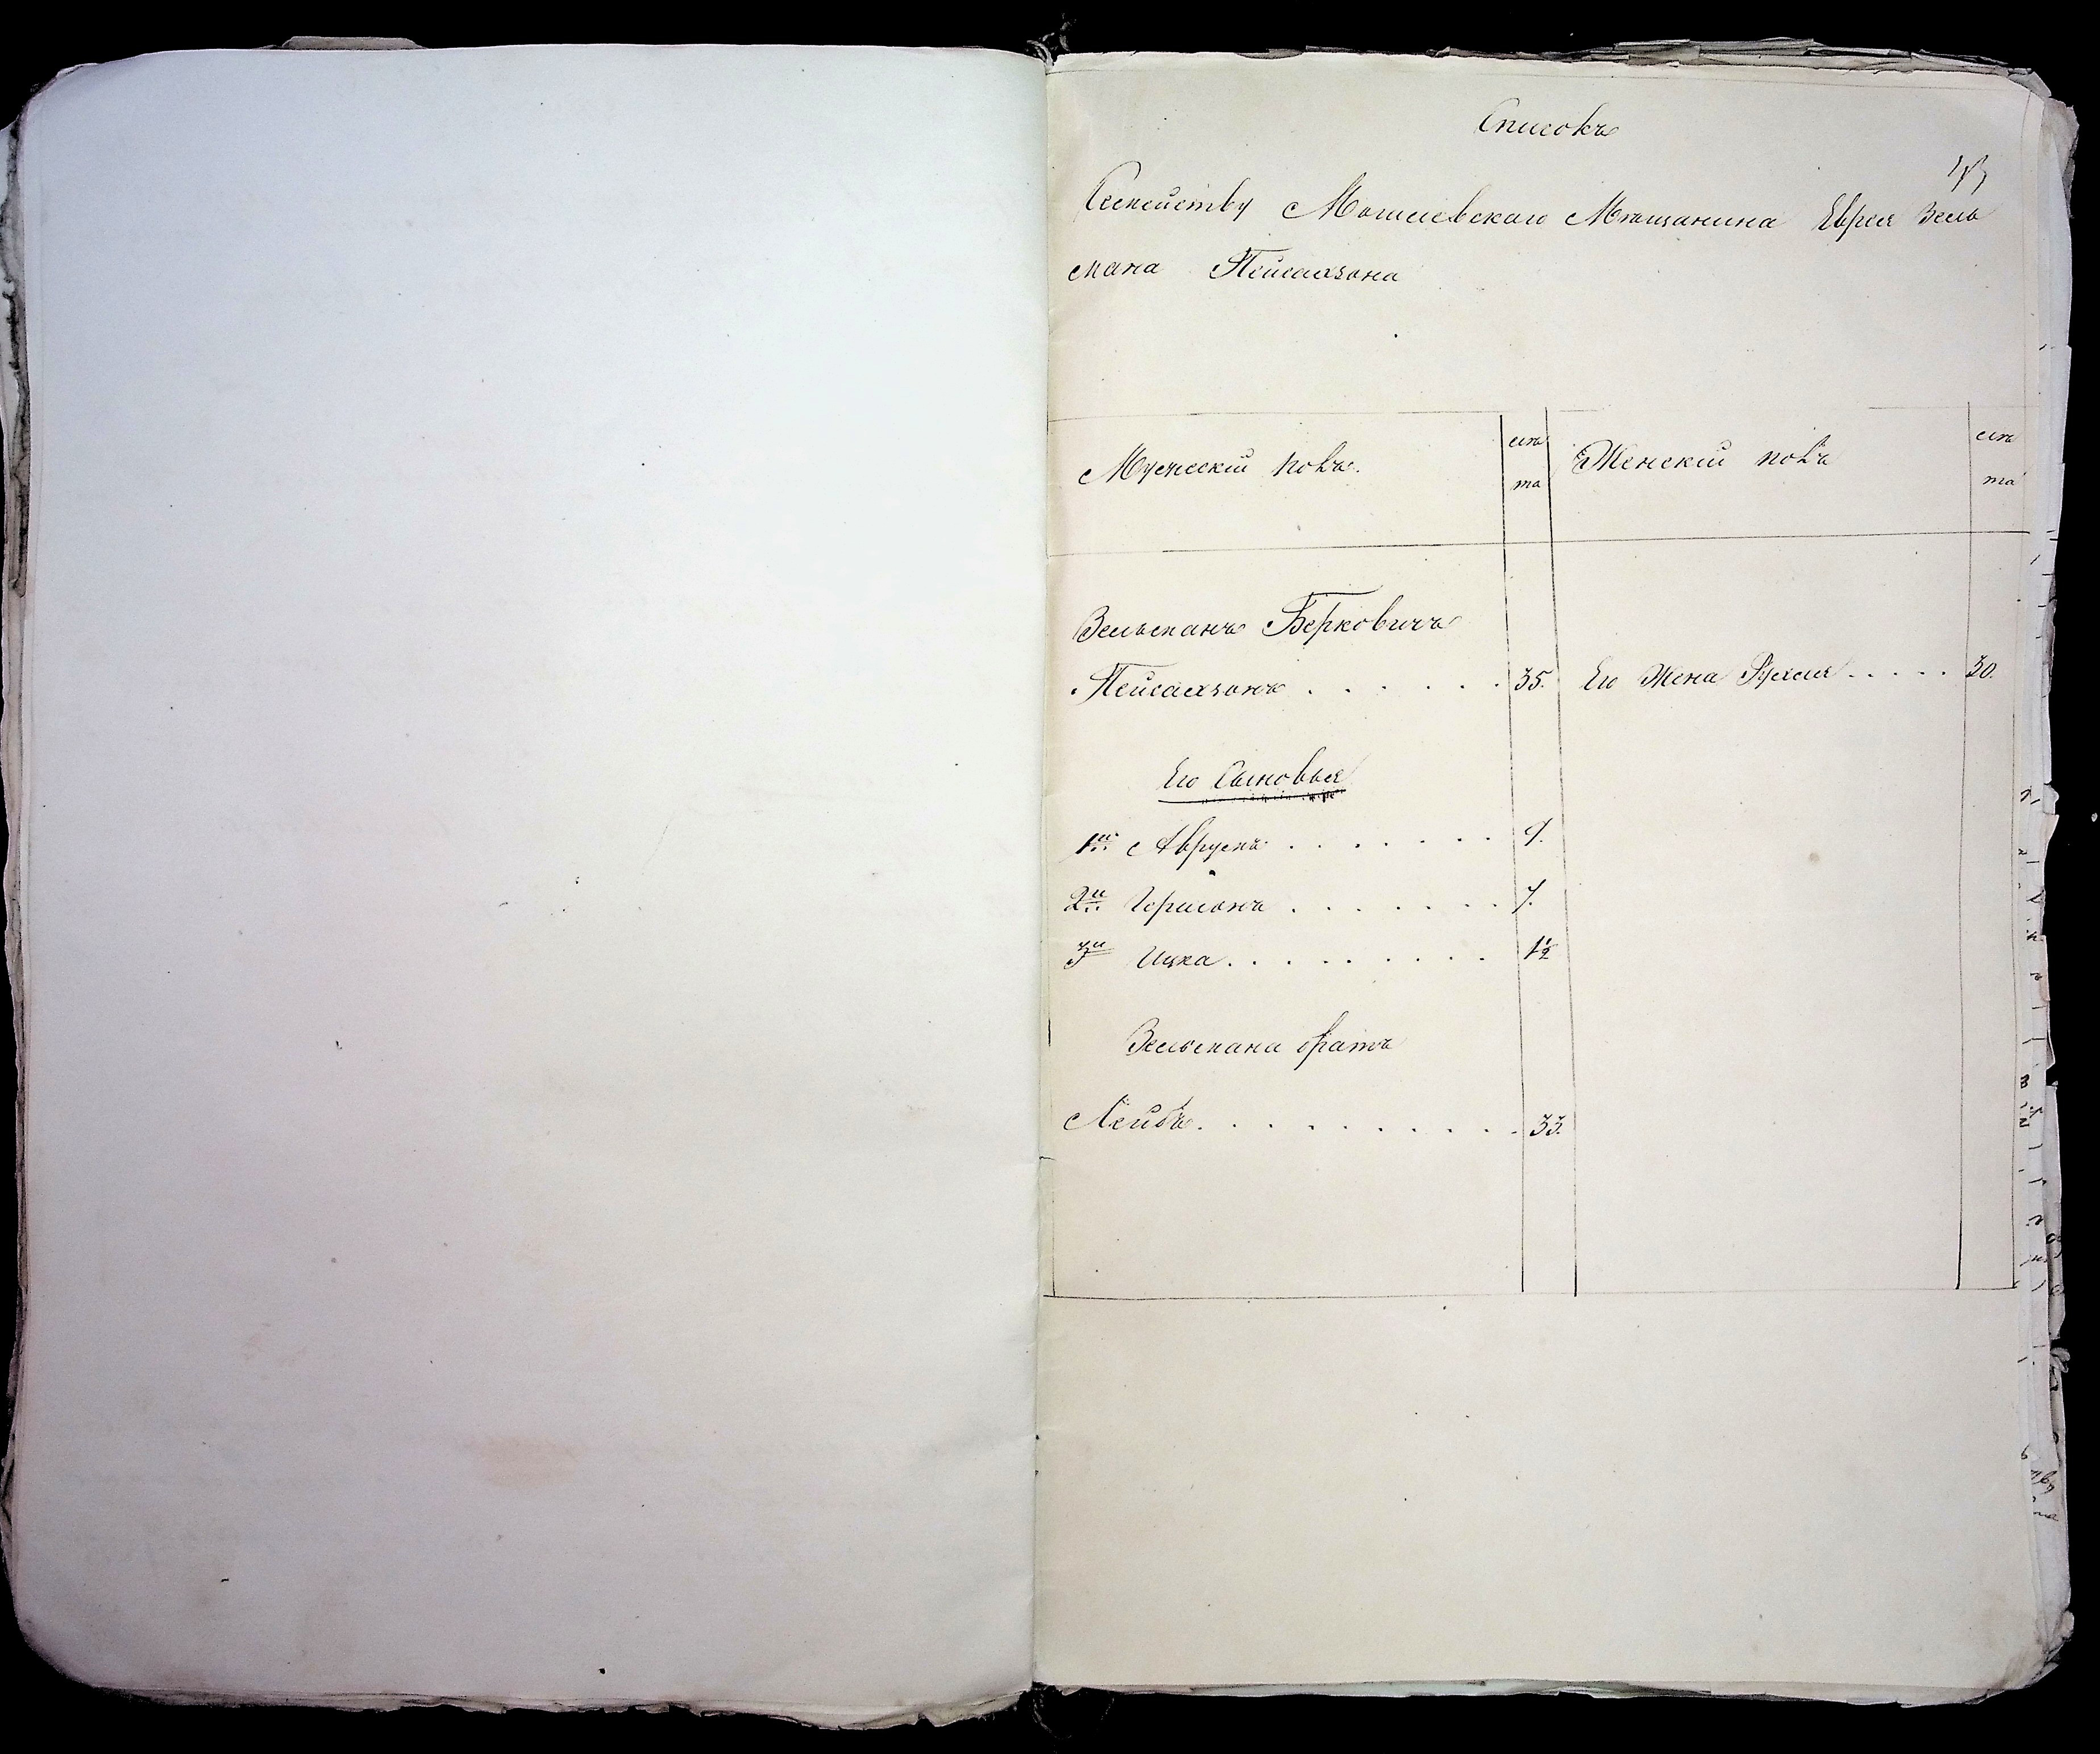 Списокъ
43
Семейству Могилевскаго Мѣщанина Еврея Зель
мана Пейсахзона
Мужескій полъ.
лѣ
та
Женскій полъ
лѣ
та
Зельманъ Берковичъ
Пейсахзонъ . . . . . . . 35. Его Жена Рухля . . . . . 30.
Его Сыновья
1й Аврумъ . . . . . . . 9.
2й Гершонъ . . . . . . . 7.
3й Ицка . . . . . . . . . 1½
Зельмана братъ
Лейбъ . . . . . . . . . . . 33.